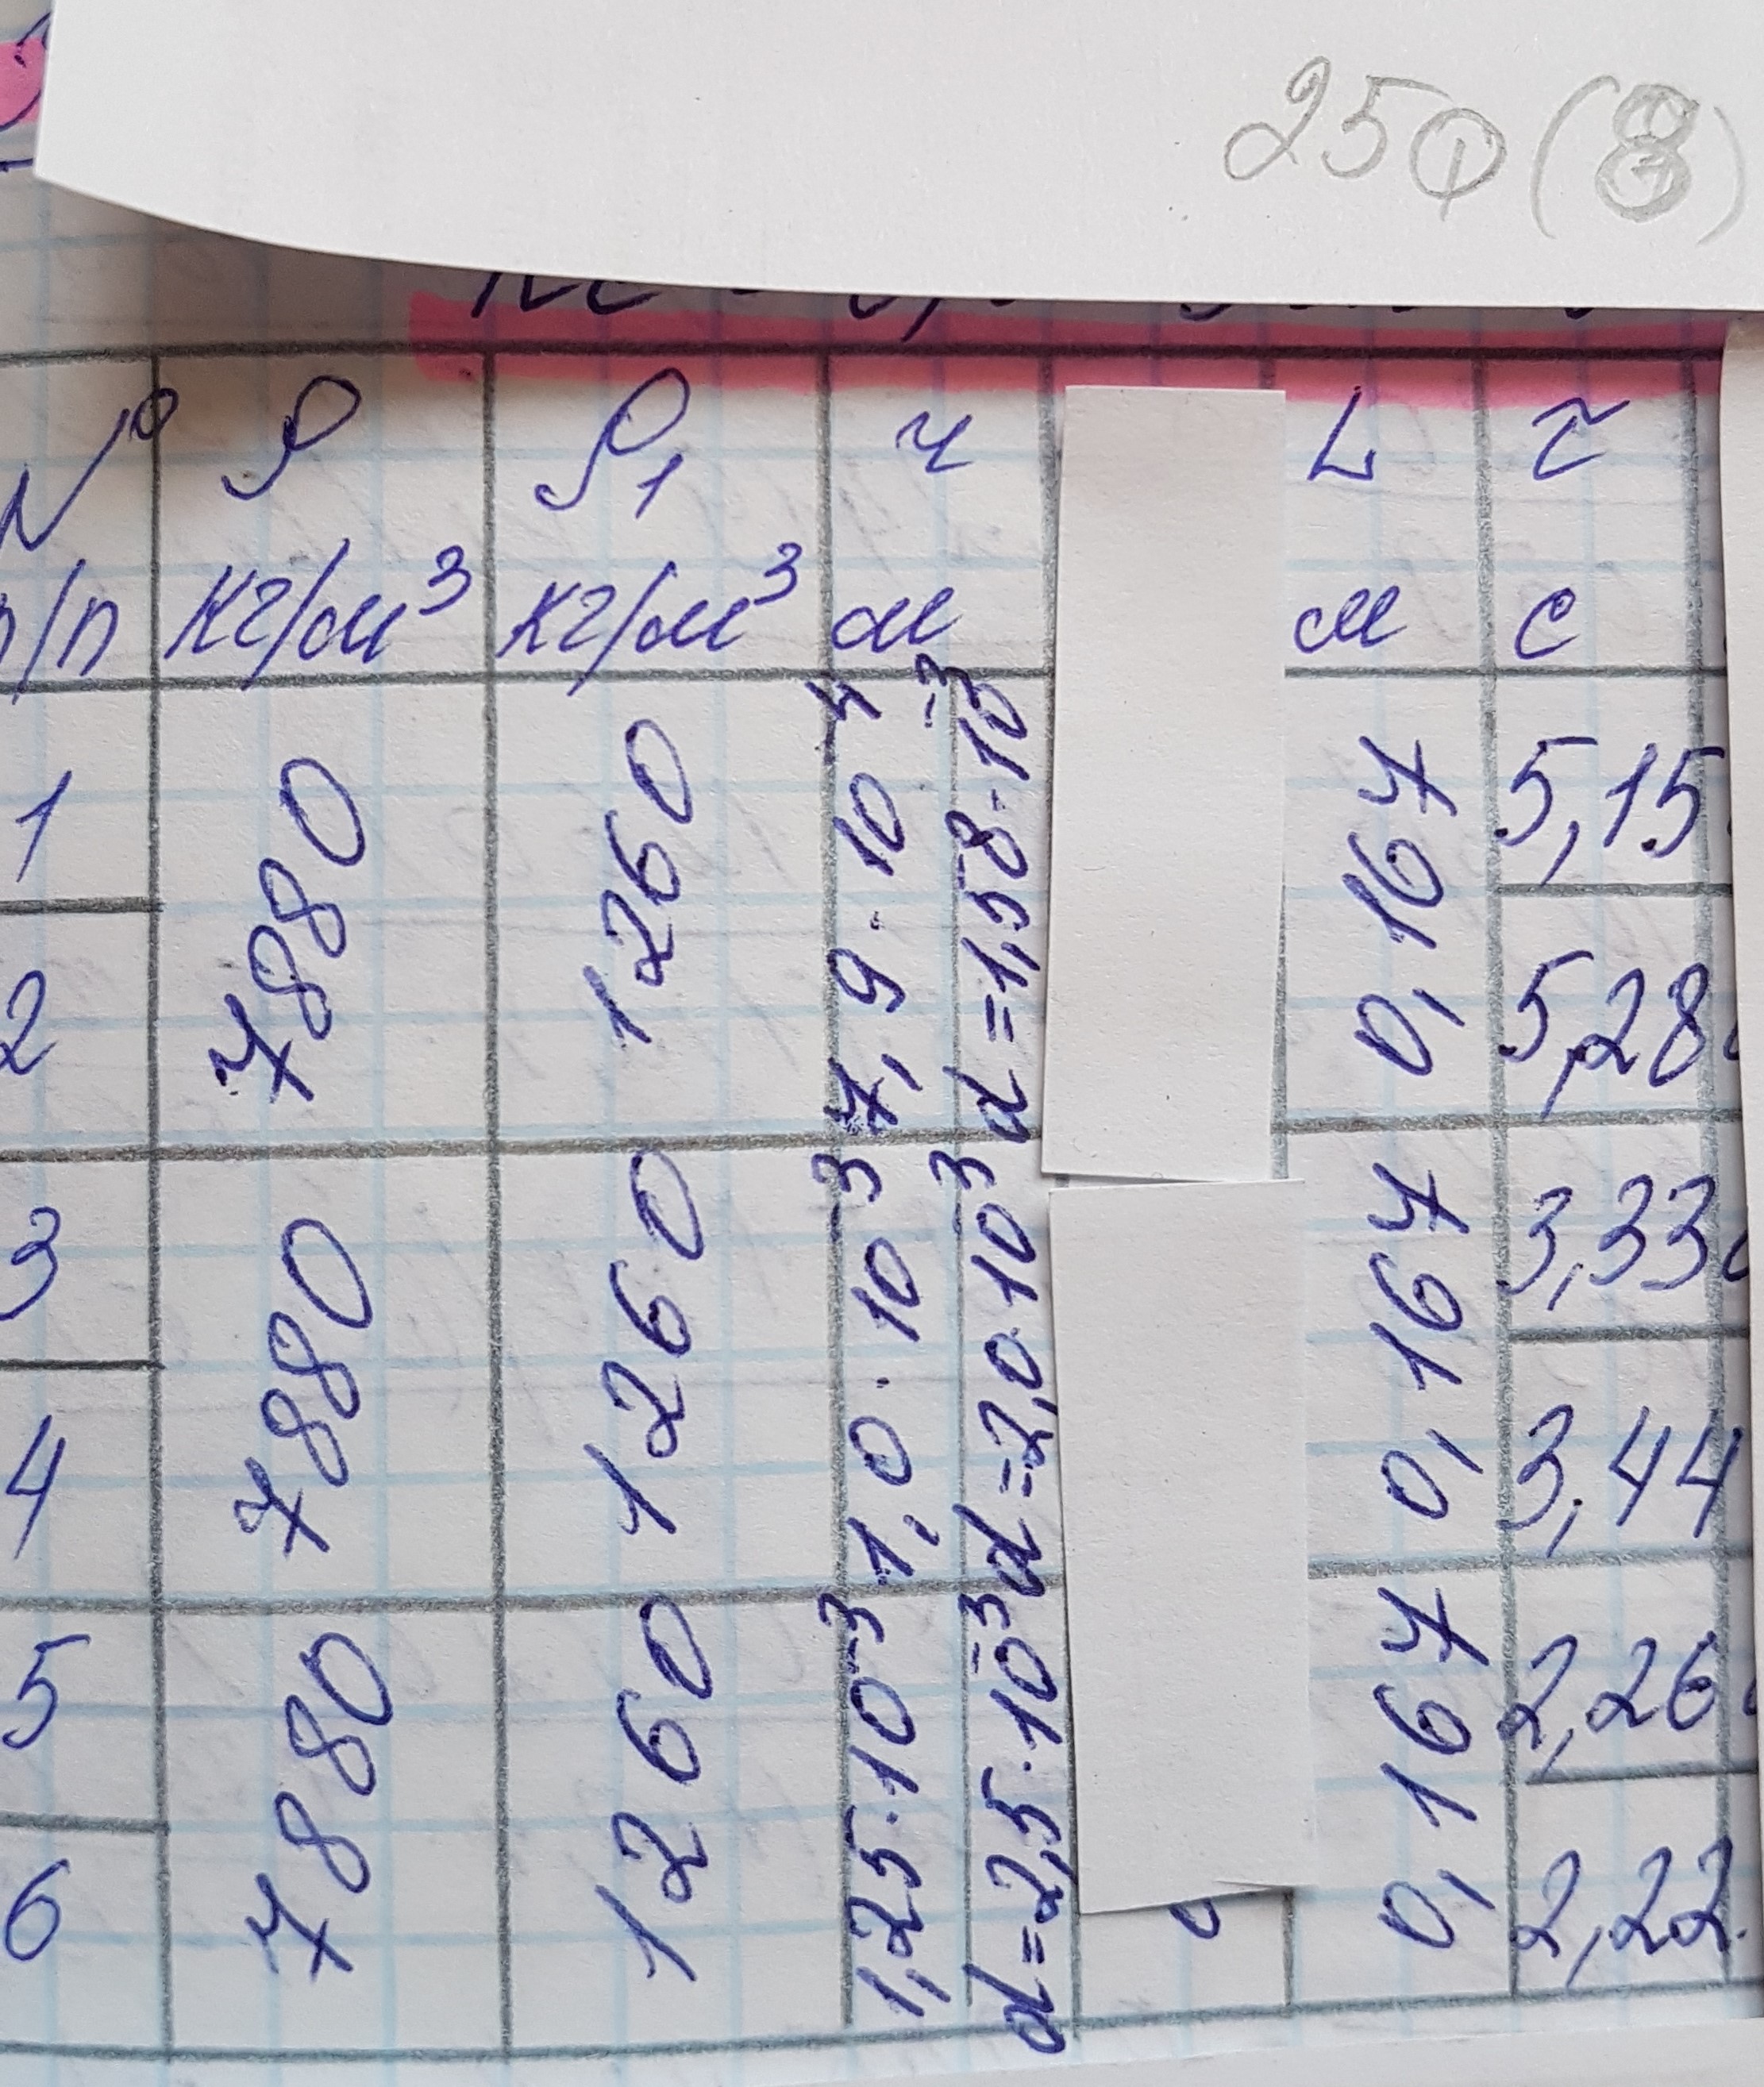 25 (8)
№ ρ ρ₁ r L τ
п/п кг/м³ кг/м³ м м с
1 7880 1260 7,9 · 10⁻⁴ d = 1,58 · 10⁻³ 0,167 5,15
2 5,28
3 7880 1260 1,0 · 10⁻³ d = 2,0 · 10⁻³ 0,167 3,33
4 3,44
5 7880 1260 1,25 · 10⁻³ d = 2,5 · 10⁻³ 0,167 2,26
6 2,22